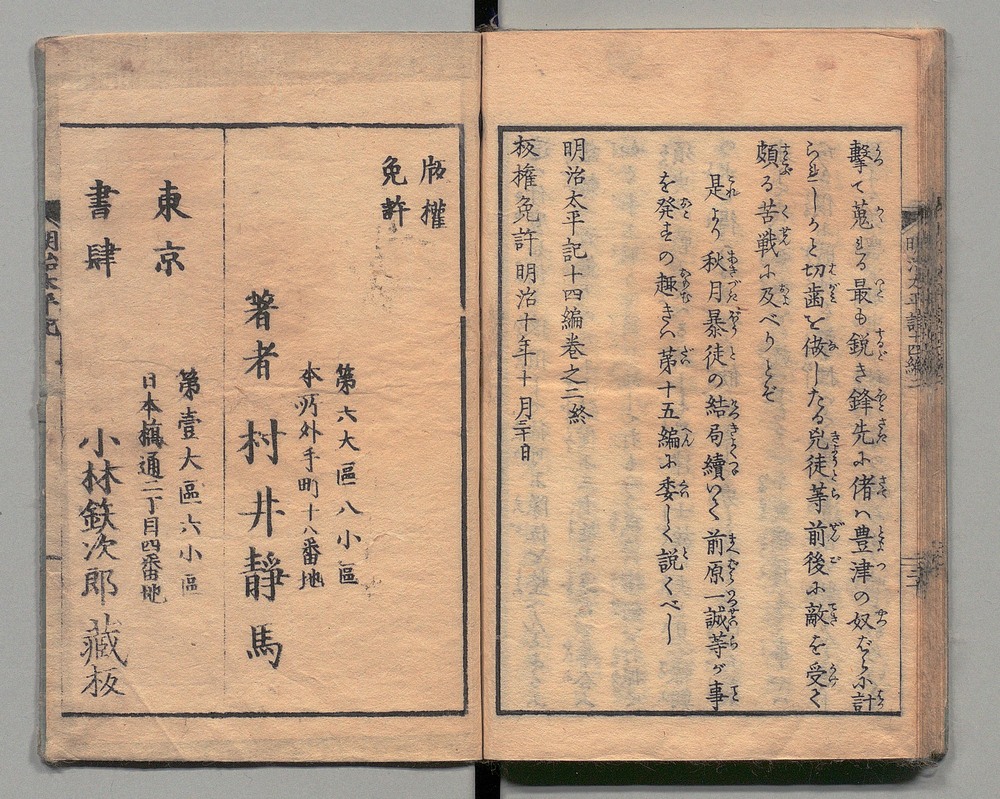 擊て蒐る最も鋭き鋒先に偖ハ豊津の奴ばらに計
られしかと切歯を做したる兇徒等前後に敵を受て
頗る苦戦に及べりとぞ
是より秋月暴徒の結局續いて前原一誠等が事
を発すの趣きハ第十五編に委しく説くべし
明治太平記十四編巻之二終
板権免許明治十年十月三十日
版權
免許
第六大區八小區
本所外手町十八番地
著者 村井靜馬
東京
第壹大區六小區
日本橋通二丁目四番地
書肆 小林鉄次郎藏板
明治太平記